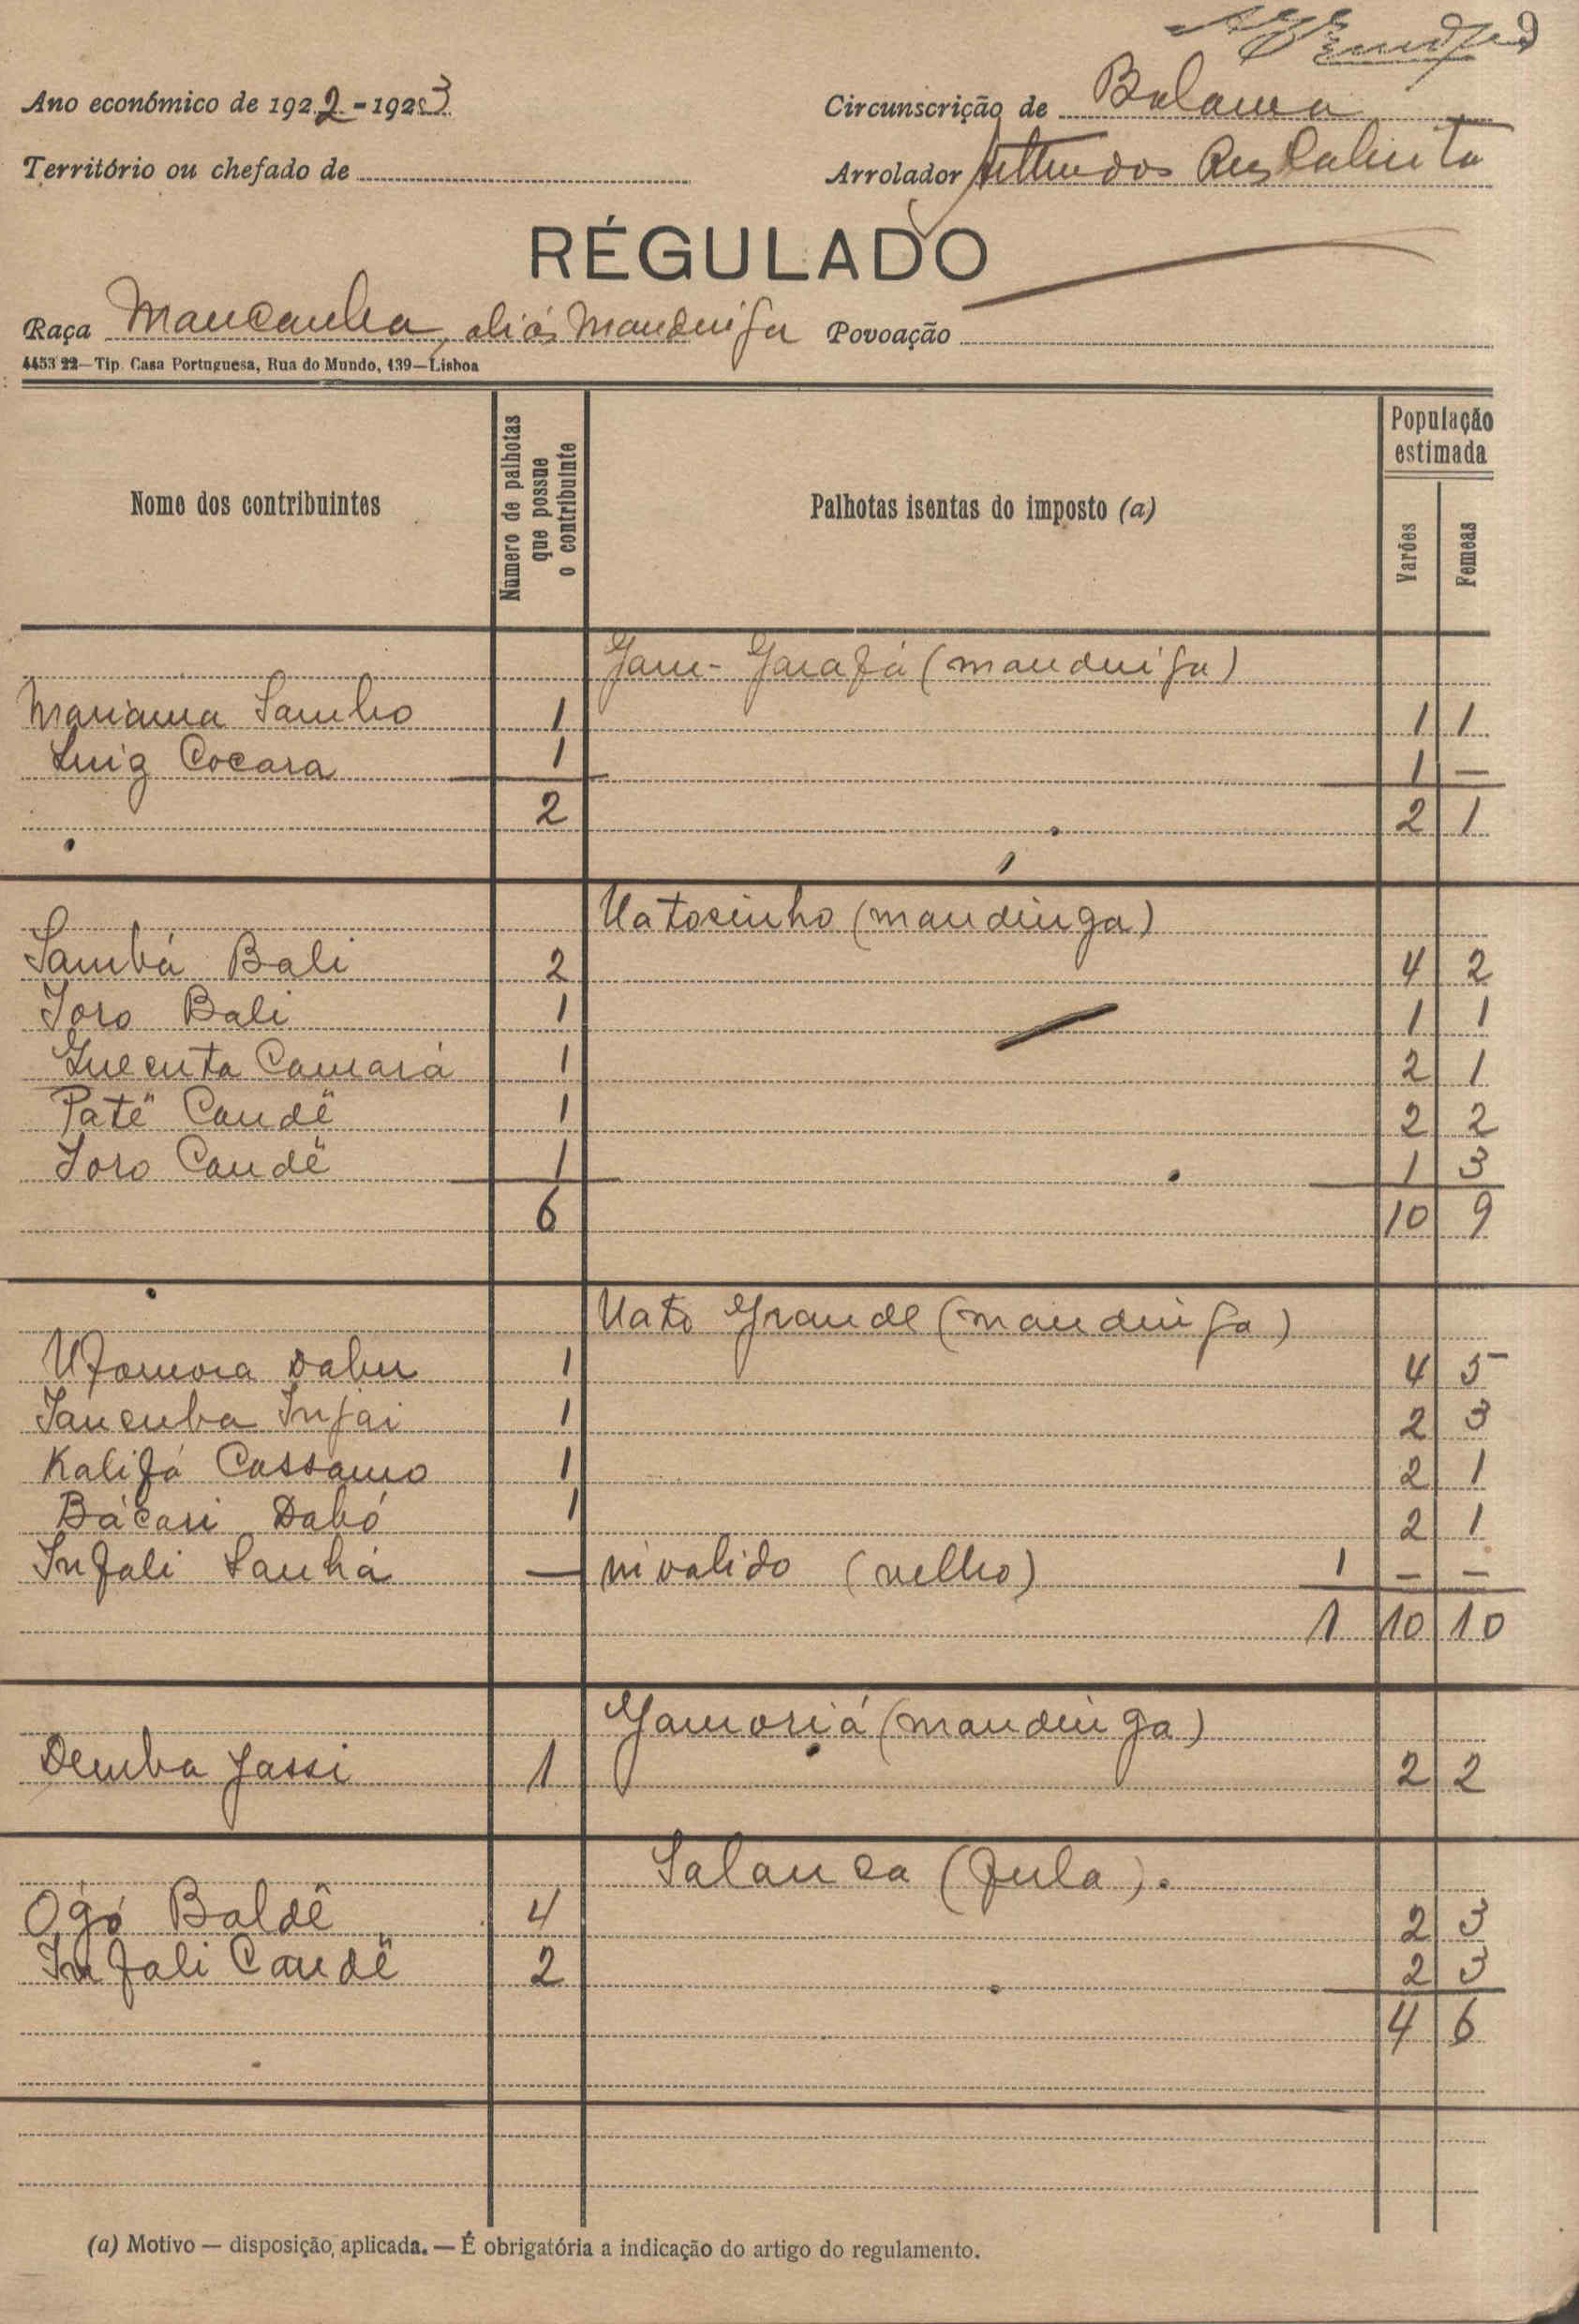 Ano económico de 1922-1923
Circunscrição de Bolama
Território ou chefado de
Arrolador
RÉGULADO
Raça Mancanha, aliás Mandinga Povoação
4453 22—Tip. Casa Portuguesa, Rua do Mundo, 139—Lisboa
Nome dos contribuintes
Número de palhotas que possue o contribuinte
Palhotas isentas do imposto (a)
População estimada
Varões
Femeas
Gam-Garafá (mandinga)
Mariama Sambo 1 1 1
Luiz Cocara 1 1 —
2 2 1
Uatosinho (mandinga)
Sambá Bali 2 4 2
Joro Bali 1 1 1
Quecuta Camará 1 2 1
Patê Candê 1 2 2
Joro Candê 1 1 3
6 10 9
Uato Grande (mandinga)
Dabu 1 4 5
Jancuba Injai 1 2 3
Kalifá Cassamo 1 2 1
Bácari Dabó 1 2 1
Infali Sanhá — invalido (velho) 1 — —
1 10 10
Gamoriá (mandinga)
Demba Jassi 1 2 2
Salanca (fula).
Ogó Baldê 4 2 3
Infali Candê 2 2 3
4 6
(a) Motivo — disposição aplicada. — É obrigatória a indicação do artigo do regulamento.